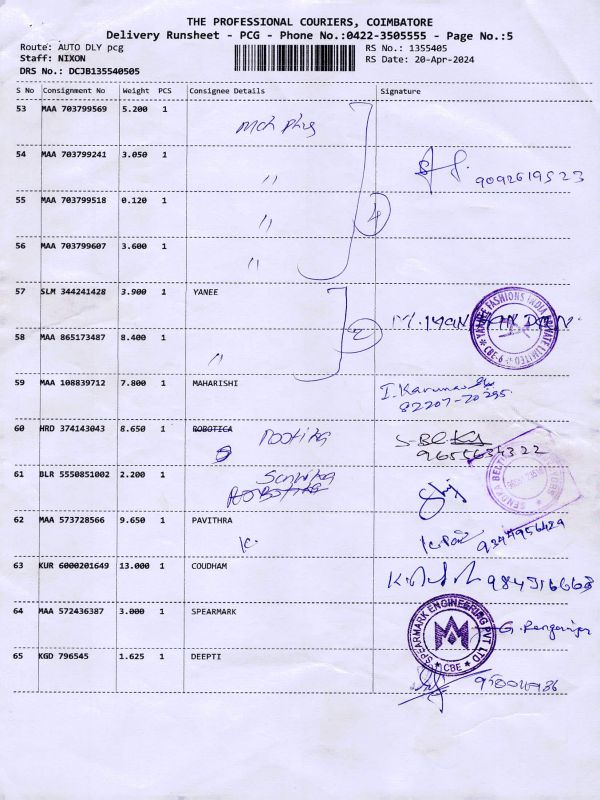 THE PROFESSIONAL COURIERS, COIMBATORE
Delivery Runsheet - PCG - Phone No.:0422-3505555 - Page No.:5
Route: AUTO DLY pcg
RS No.: 1355405
Staff: NIXON
RS Date: 20-Apr-2024
DRS No.: DCJB135540505
S No Consignment No Weight PCS Consignee Details Signature
53 MAA 703799569 5.200 1
54 MAA 703799241 3.050 1 "
9092619523
55 MAA 703799518 0.120 1 "
4
56 MAA 703799607 3.600 1 "
57 SLM 344241428 3.900 1 YANEE
2
58 MAA 865173487 8.400 1 "
FASHIONS INDIA PRIVATE LIMITED
CBE-6
59 MAA 108839712 7.800 1 MAHARISHI
82207-70295
60 HRD 374143043 8.650 1 ROBOTICA
9655634322
61 BLR 5550851002 2.200 1
62 MAA 573728566 9.650 1 PAVITHRA
K.
63 KUR 6000201649 13.000 1 COUDHAM
64 MAA 572436387 3.000 1 SPEARMARK
SPEARMARK ENGINEERING PVT LTD
CBE
65 KGD 796545 1.625 1 DEEPTI